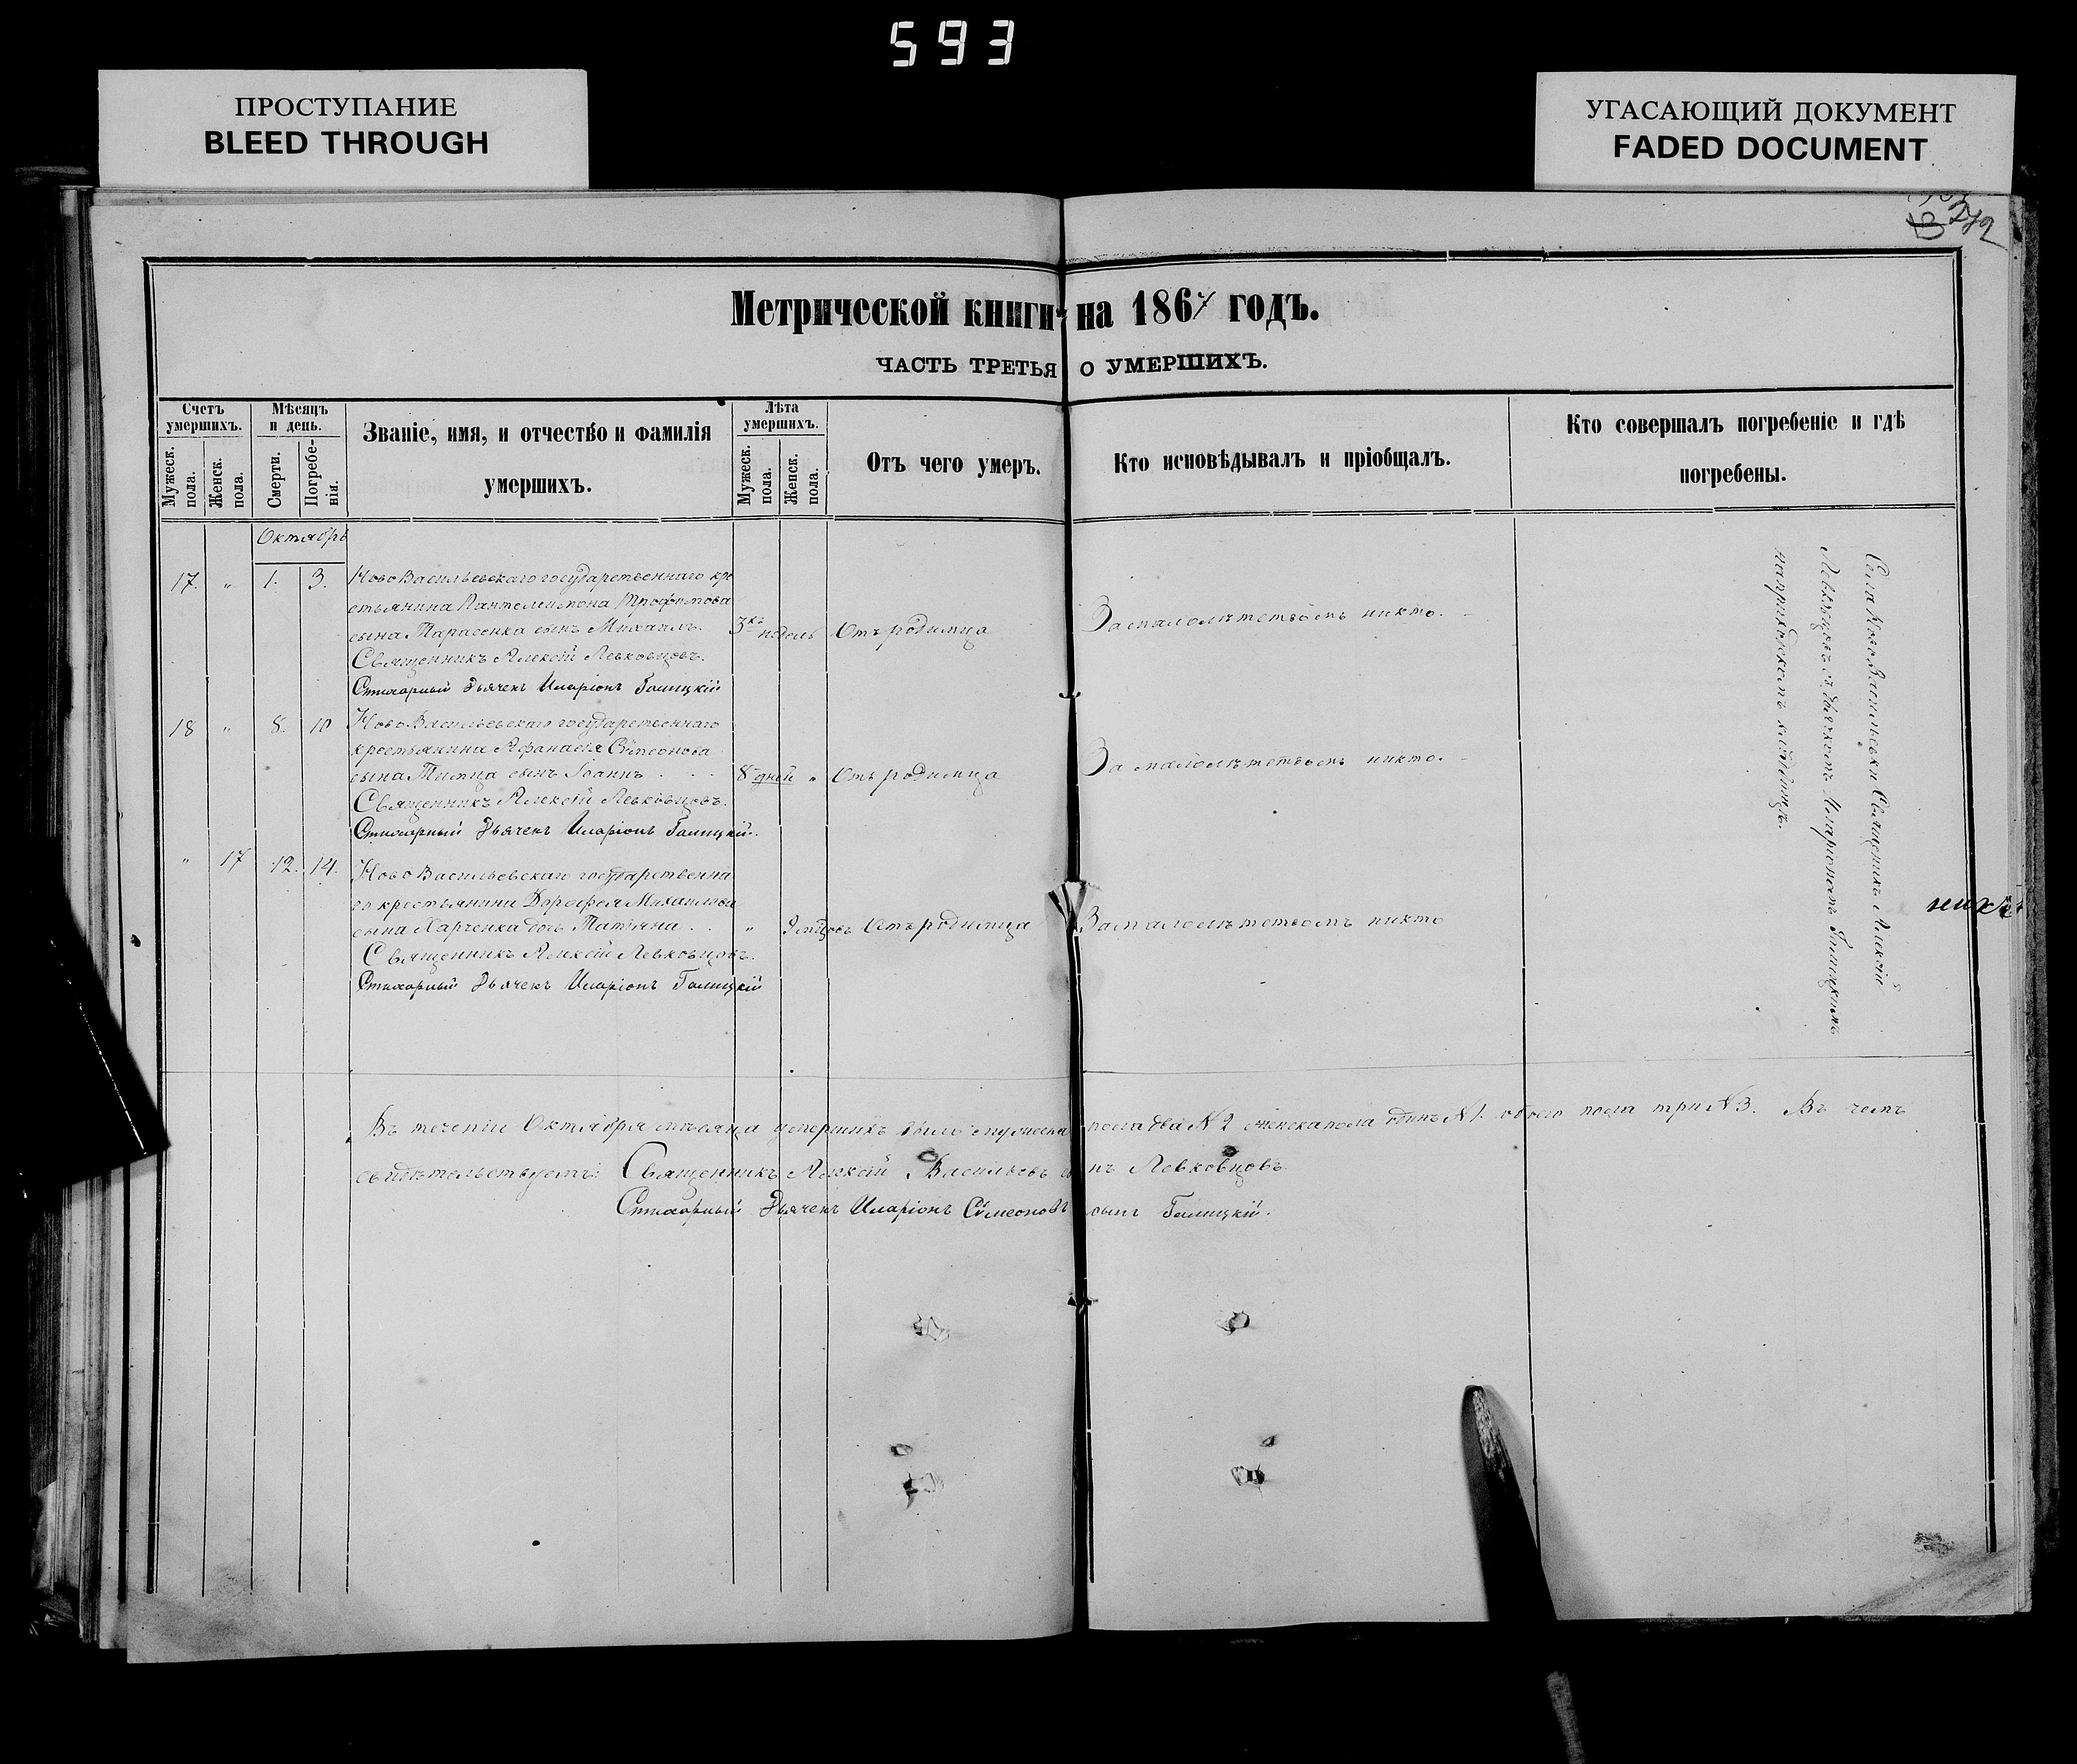 593
ПРОСТУПАНИЕ
BLEED THROUGH
УГАСАЮЩИЙ ДОКУМЕНТ
FADED DOCUMENT
272
Метрической книги на 1867 годъ.
ЧАСТЬ ТРЕТЬЯ О УМЕРШИХЪ.
Счетъ умершихъ.
Мужеск. пола.
Женск. пола.
Мѣсяцъ и день.
Смерти.
Погребе-нія.
Званіе, имя, и отчество и фамилія
умершихъ.
Лѣта умершихъ.
Мужеск. пола.
Женск. пола.
Отъ чего умеръ.
Кто исповѣдывалъ и пріобщалъ.
Кто совершалъ погребеніе и гдѣ
погребены.
Октябрь
17. " 1. 3. НовоВасильевскаго государственнаго кре
стьянина Пантелеимона Трофимова
сына Тарасенка сынъ Михаилъ. 3хъ недель Отъ родимца За малолѣтствомъ никто.
Священникъ Алексій Левковцовъ.
Стихарный Дьячекъ Иларіонъ Галицкій
18 " 8. 10 НовоВасильевскаго государственнаго
крестьянина Афанасія Сѵмеонова
сына Тимца сынъ Іоаннъ 8 дней " Отъ родимца За малолѣтствомъ никто.
Священникъ Алексій Левковцовъ.
Стихарный Дьячекъ Иларіонъ Галицкій.
" 17 12. 14. НовоВасильевскаго государственна
го крестьянина Дорофея Михаилова
сына Харченка дочь Татіяна " 9 мѣцовъ Отъ родимца За малолѣтствомъ никто
Священникъ Алексій Левковцовъ.
Стихарный Дьячекъ Иларіонъ Галицкій
Села НовоВасильевки Священникъ Алексій
Левковцовъ съ дьячкомъ Иларіономъ Галицкимъ
на приходскомъ кладбищѣ.
Въ теченіи Октября мѣсяца умершихъ было мужеска пола два № 2 женска пола одинъ № 1. обоего пола три № 3. Въ чемъ
свидѣтельствуемъ: Священникъ Алексій Васильевъ сынъ Левковцовъ.
Стихарный Дьячекъ Иларіонъ Сѵмеоновъ сынъ Галицкій.